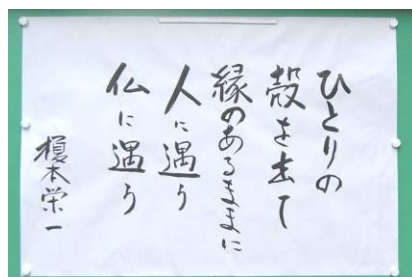 ひとりの
殻を出て
縁のあるままに
人に遇う
仏に遇う
榎本栄一